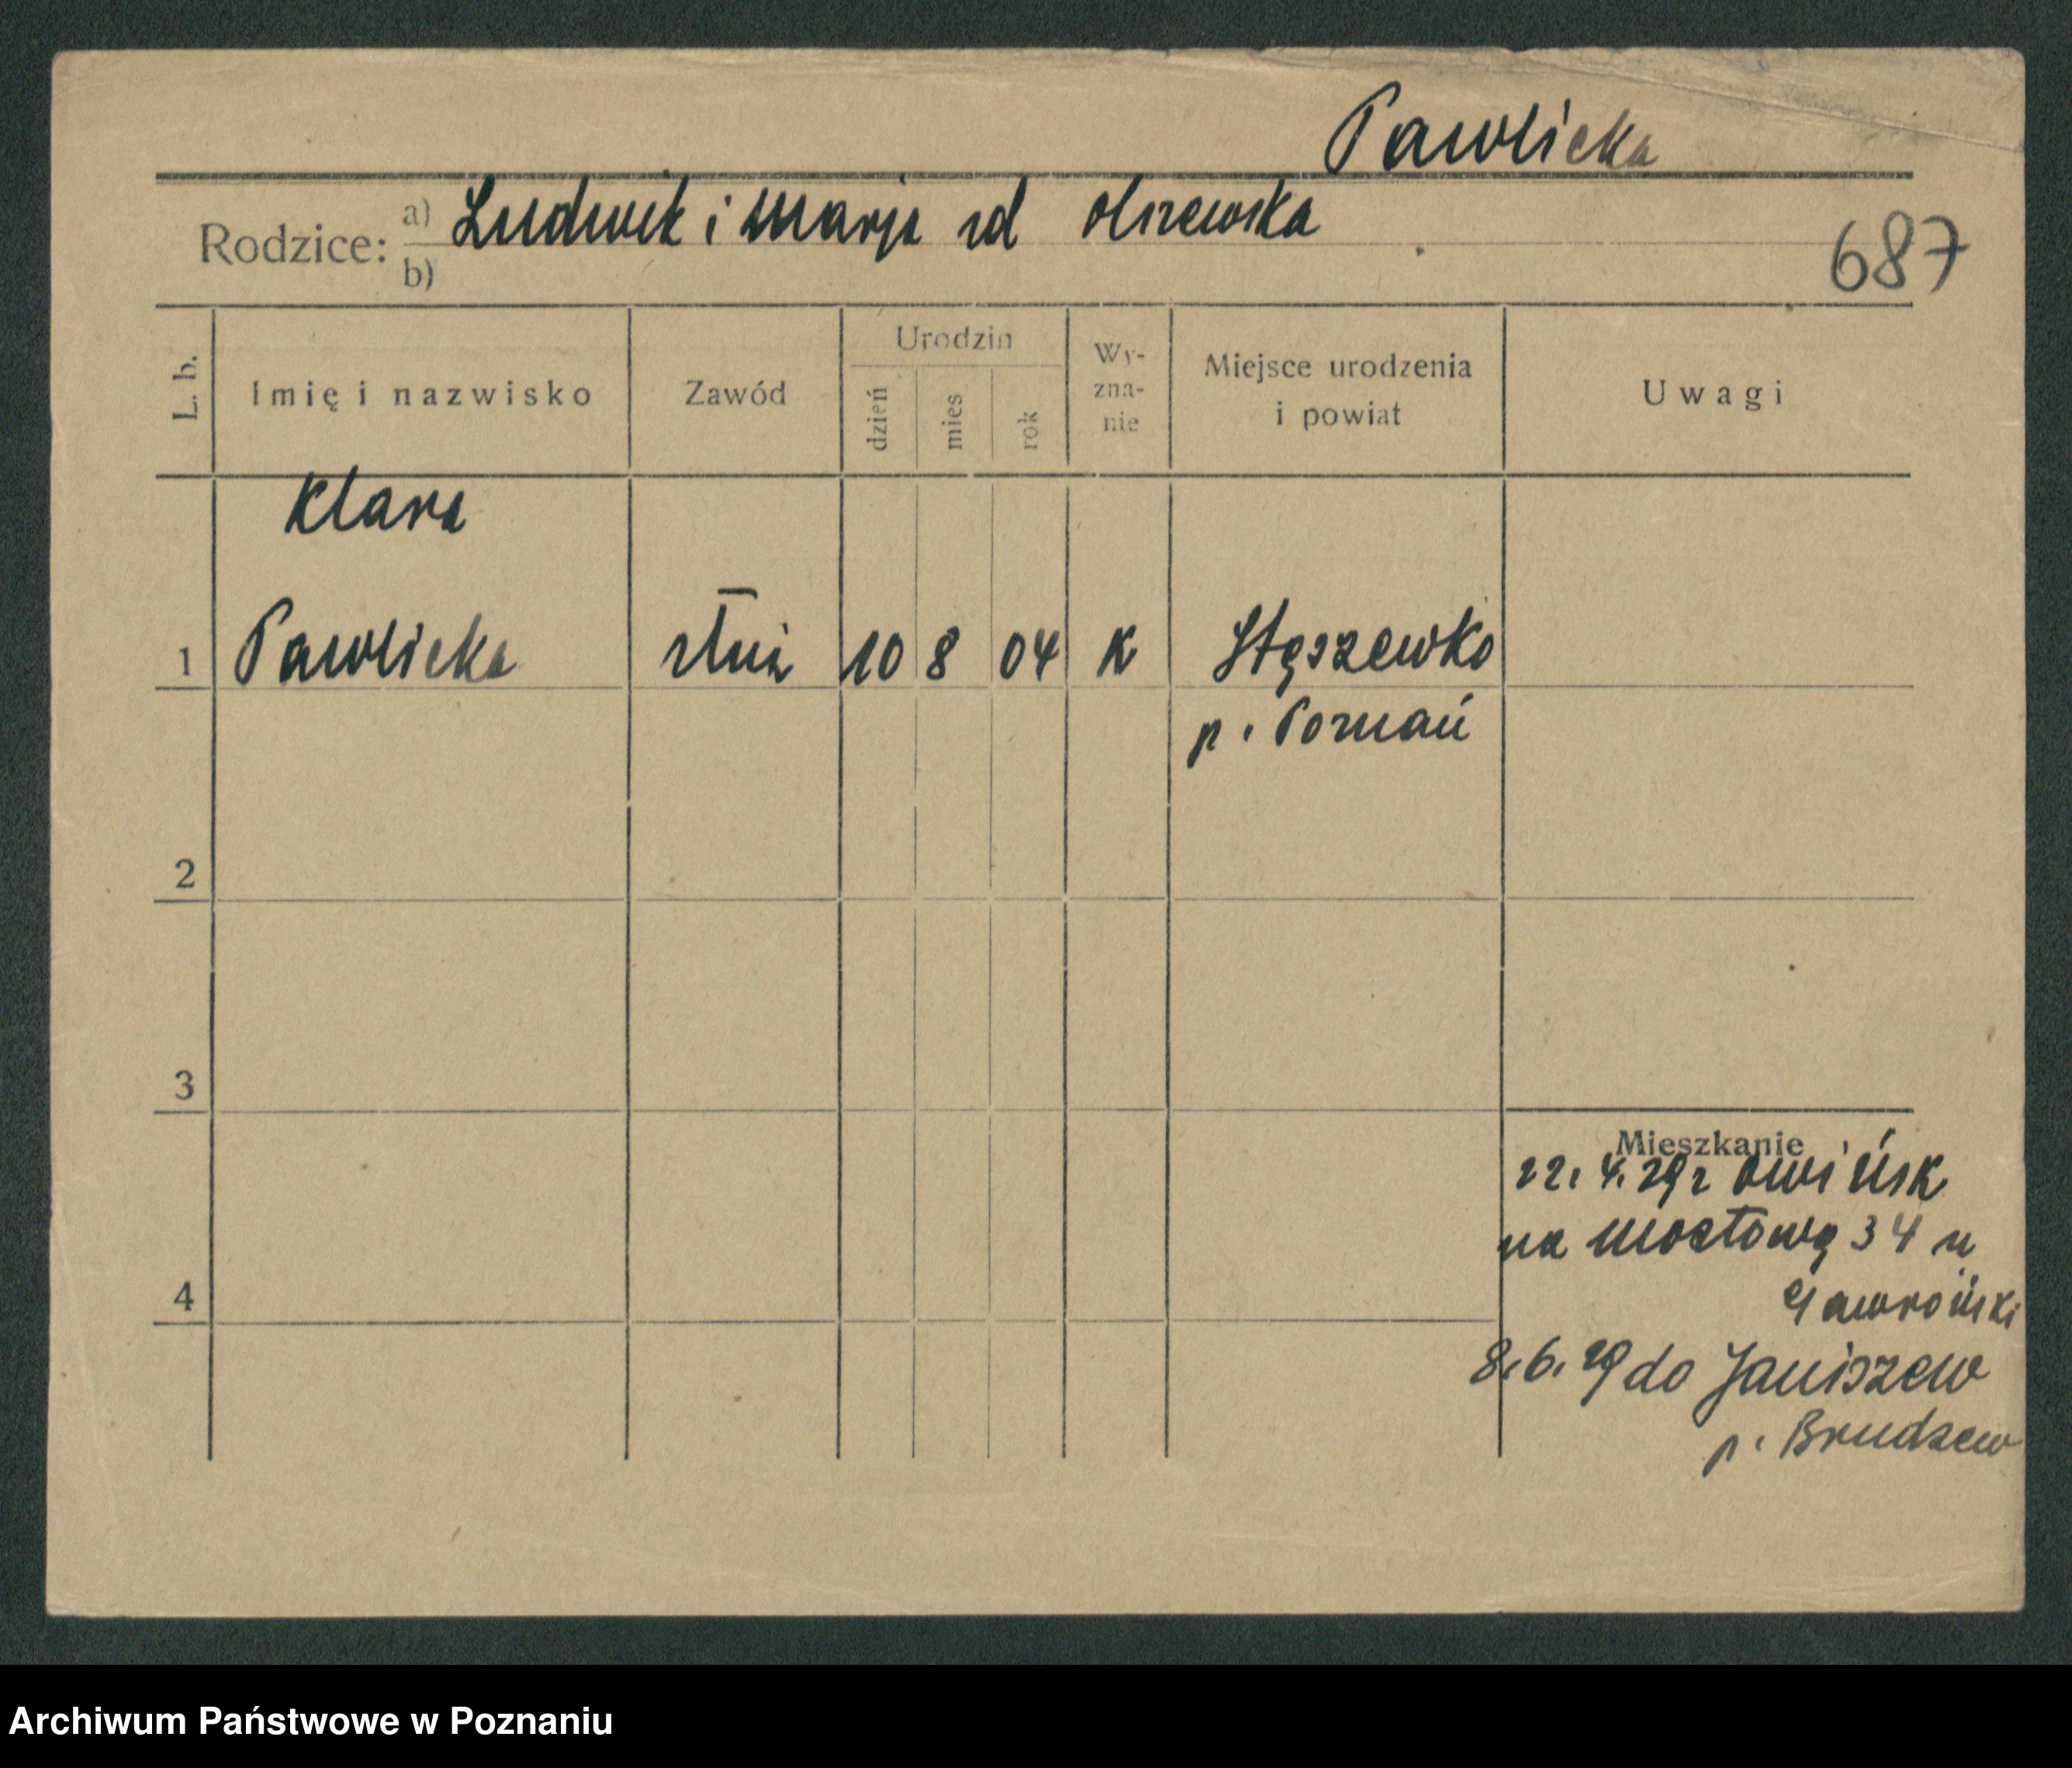 Pawlicka
Rodzice: a) Ludwik i Marja zd Olszewska
b)
687
L. b. Imię i nazwisko Zawód Urodzin dzień mies rok Wy-zna-nie Miejsce urodzenia i powiat Uwagi
Klara
1 Pawlicka służ 10 8 04 K Stęszewko
p. Poznań
2
3
Mieszkanie
22. 4. 29 z Owińsk
na Mostową 34 u
4 Gawroński
8. 6. 29 do Janiszew
p. Brudzew
Archiwum Państwowe w Poznaniu